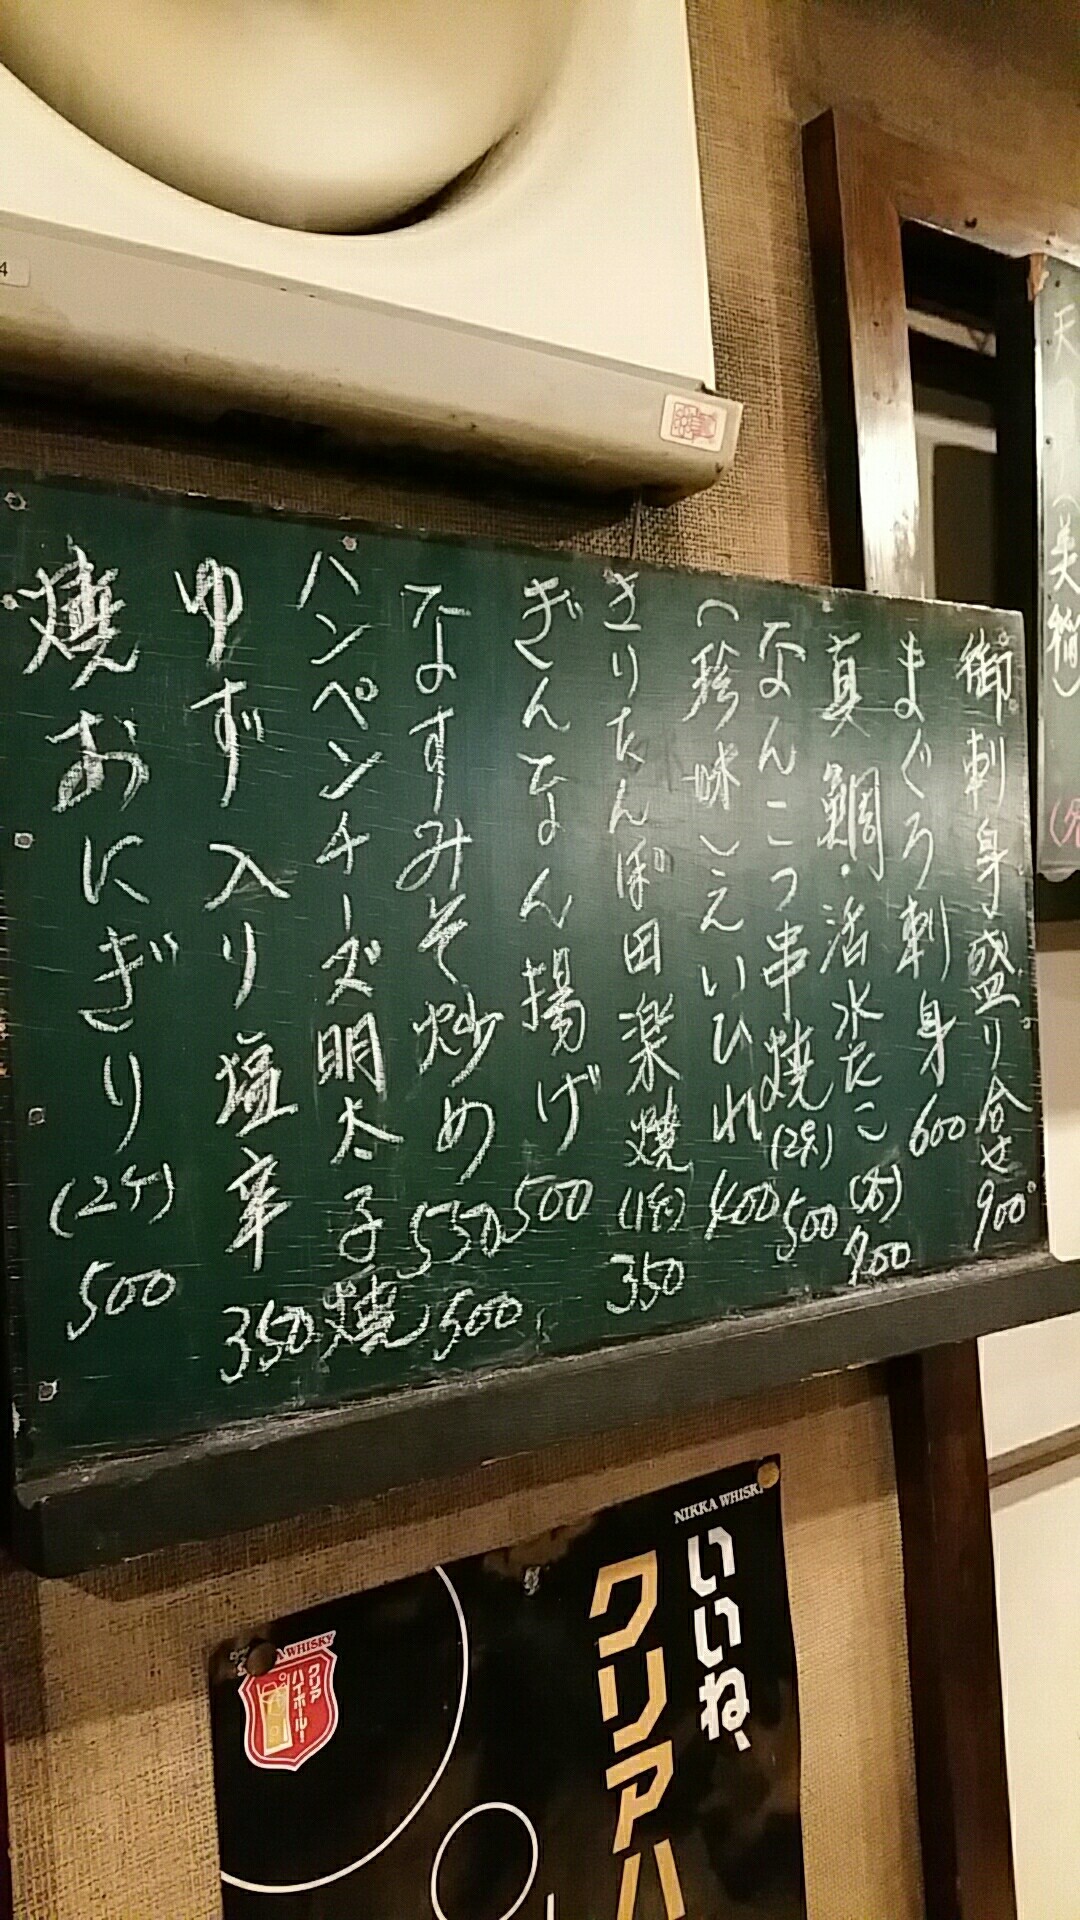 御刺身盛り合せ 900
まぐろ刺身 600
真鯛・活水たこ (各) 700
なんこつ串焼 (2本) 500
(珍味)えいひれ 400
きりたんぽ田楽焼 (1本) 350
ぎんなん揚げ 500
なすみそ炒め 550
ハンペンチーズ明太子焼 500
ゆず入り塩辛 350
焼おにぎり (2ケ) 500
(美
NIKKA WHISK
いいね、
クリアハ
WHISKY
クリア
ハイボール
4